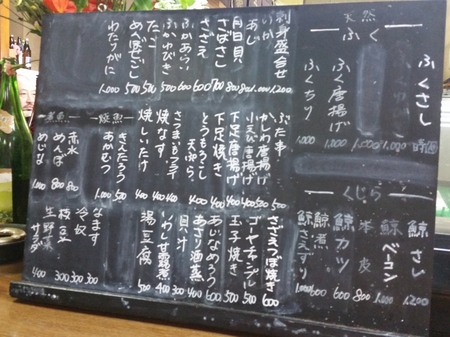 天然
ふく
ふくさし 時価
ふく唐揚げ 1,000
ふくちり 1,000
くじら
鯨さし 1,200
鯨ベーコン 1,000
本皮 800
鯨カツ 600
鯨煮 600
鯨さえずり 1,000
刺身盛合せ 1,200
いか 1,000
あじ 800
月日貝 800
さばさし 700
さざえ 600
ふかあらい 600
ふかゆびき 500
たこ 500
めんぼうさし
わたりがに 1,000
ぶた串
かしわ唐揚げ
小えび唐揚げ
下足唐揚げ
下足焼き
とうもろこし天ぷら
さつまいもフライ
焼なす 400
焼しいたけ 400
焼魚
きんたろう 500
あかむつ 1,000
煮魚
赤水 800
めんぼ 800
めじな 1,000
さざえつぼ焼き 600
ゴーヤチャンプル 500
玉子焼き 500
あじなめろう 600
あさり酒蒸
貝汁
いわし甘露煮 400
湯豆腐 500
なます 300
冷奴 300
枝豆 300
生野菜サラダ 400